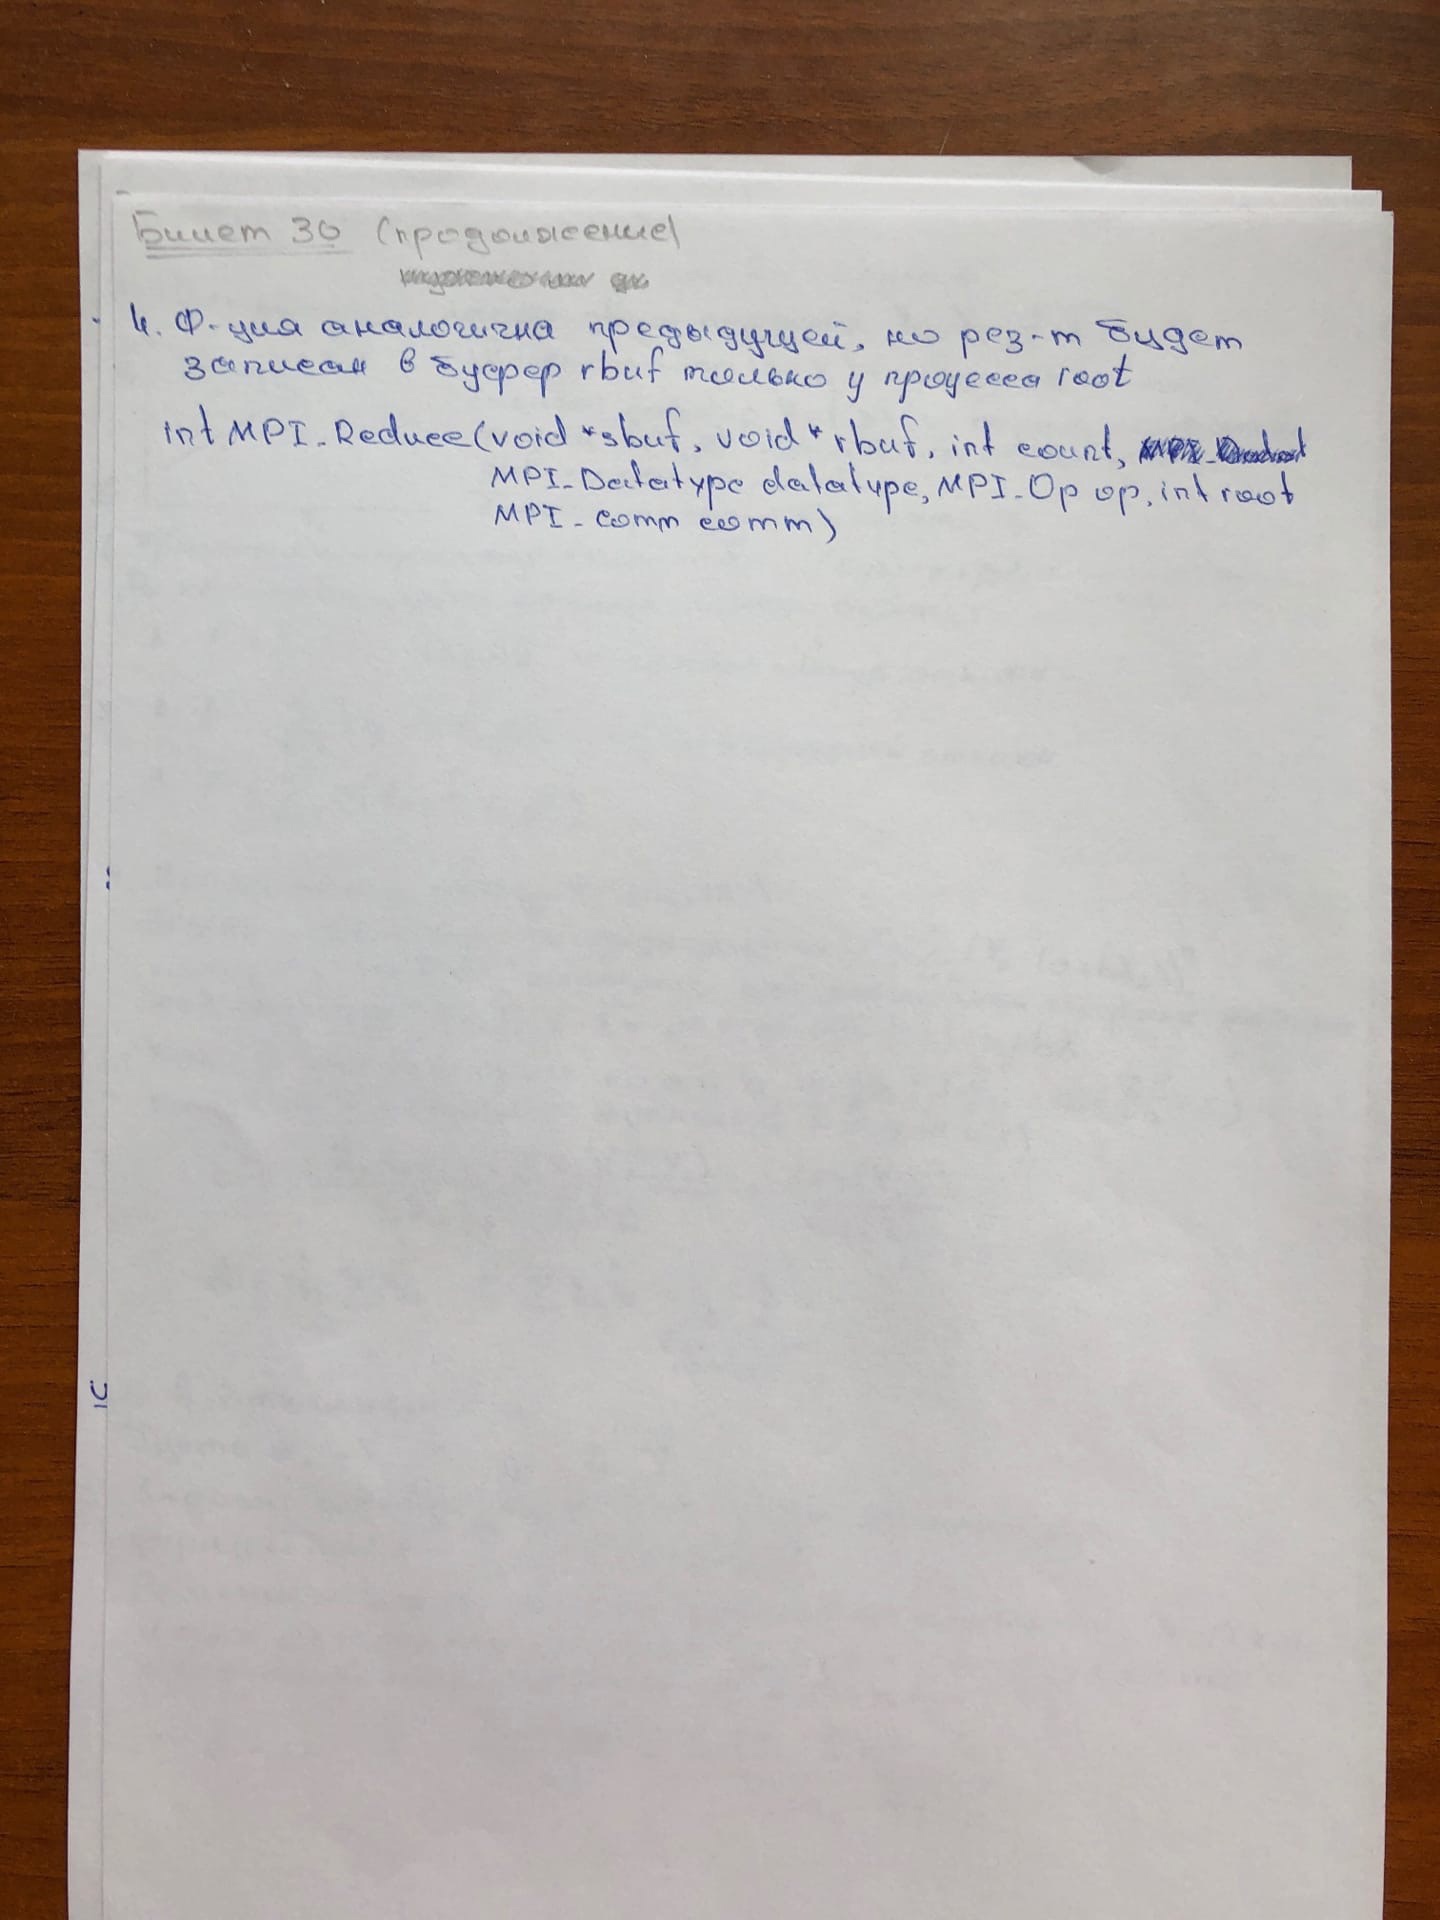 Билет 30 (продолжение)
4. Ф-ция аналогична предыдущей, но рез-т будет
записан в буфер rbuf только у процесса root
int MPI_Reduce(void *sbuf, void *rbuf, int count,
MPI_Datatype datatype, MPI_Op op, int root
MPI_Comm comm)